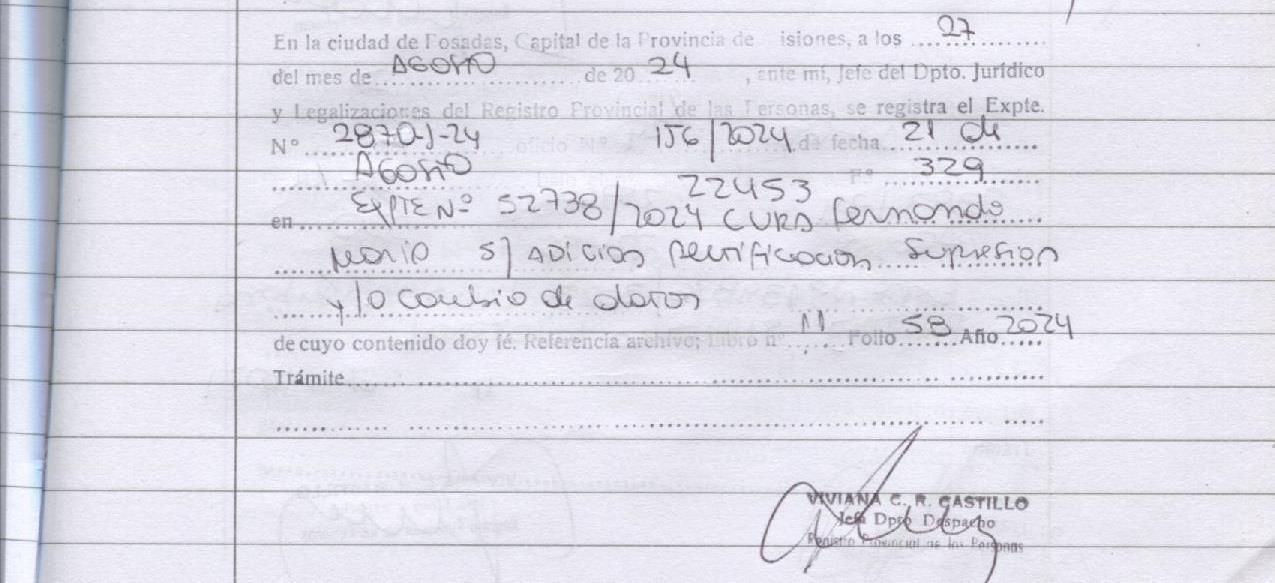 En la ciudad de Posadas, Capital de la Provincia de isiones, a los 27
del mes de AGOSTO de 20 24, ante mí, Jefe del Dpto. Jurídico
y Legalizaciones del Registro Provincial de las Personas, se registra el Expte.
N° 2870-J-24 oficio N° 156/2024 de fecha 21 de
AGOSTO F° 329
22453
en EXPTE Nº 52738/2024 CURA Fernando
Mario S/ ADICION Rectificacion Supresion
y/o cambio de datos
de cuyo contenido doy fé. Referencia archivo: Libro n° 11 Folio 58 Año 2024
Trámite
VIVIANA C. R. CASTILLO
Jefa Dpto Despacho
Registro Provincial de las Personas